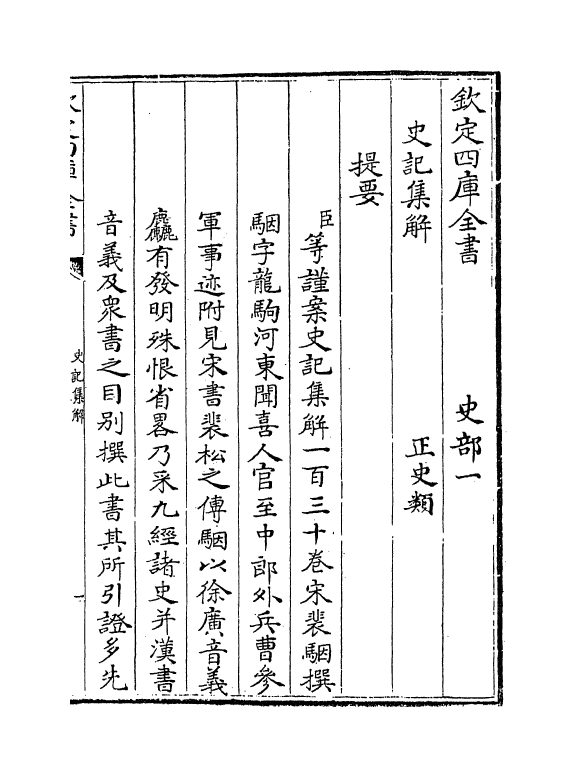 欽定四庫全書　史部一
史記集解　正史類
提要
臣等謹案史記集解一百三十卷宋裴駰撰
駰字龍駒河東聞喜人官至中郎外兵曹參
軍事迹附見宋書裴松之傳駰以徐廣音義
麤有發明殊恨省畧乃采九經諸史并漢書
音義及衆書之目別撰此書其所引證多先
欽定四庫全書　史記集解　一